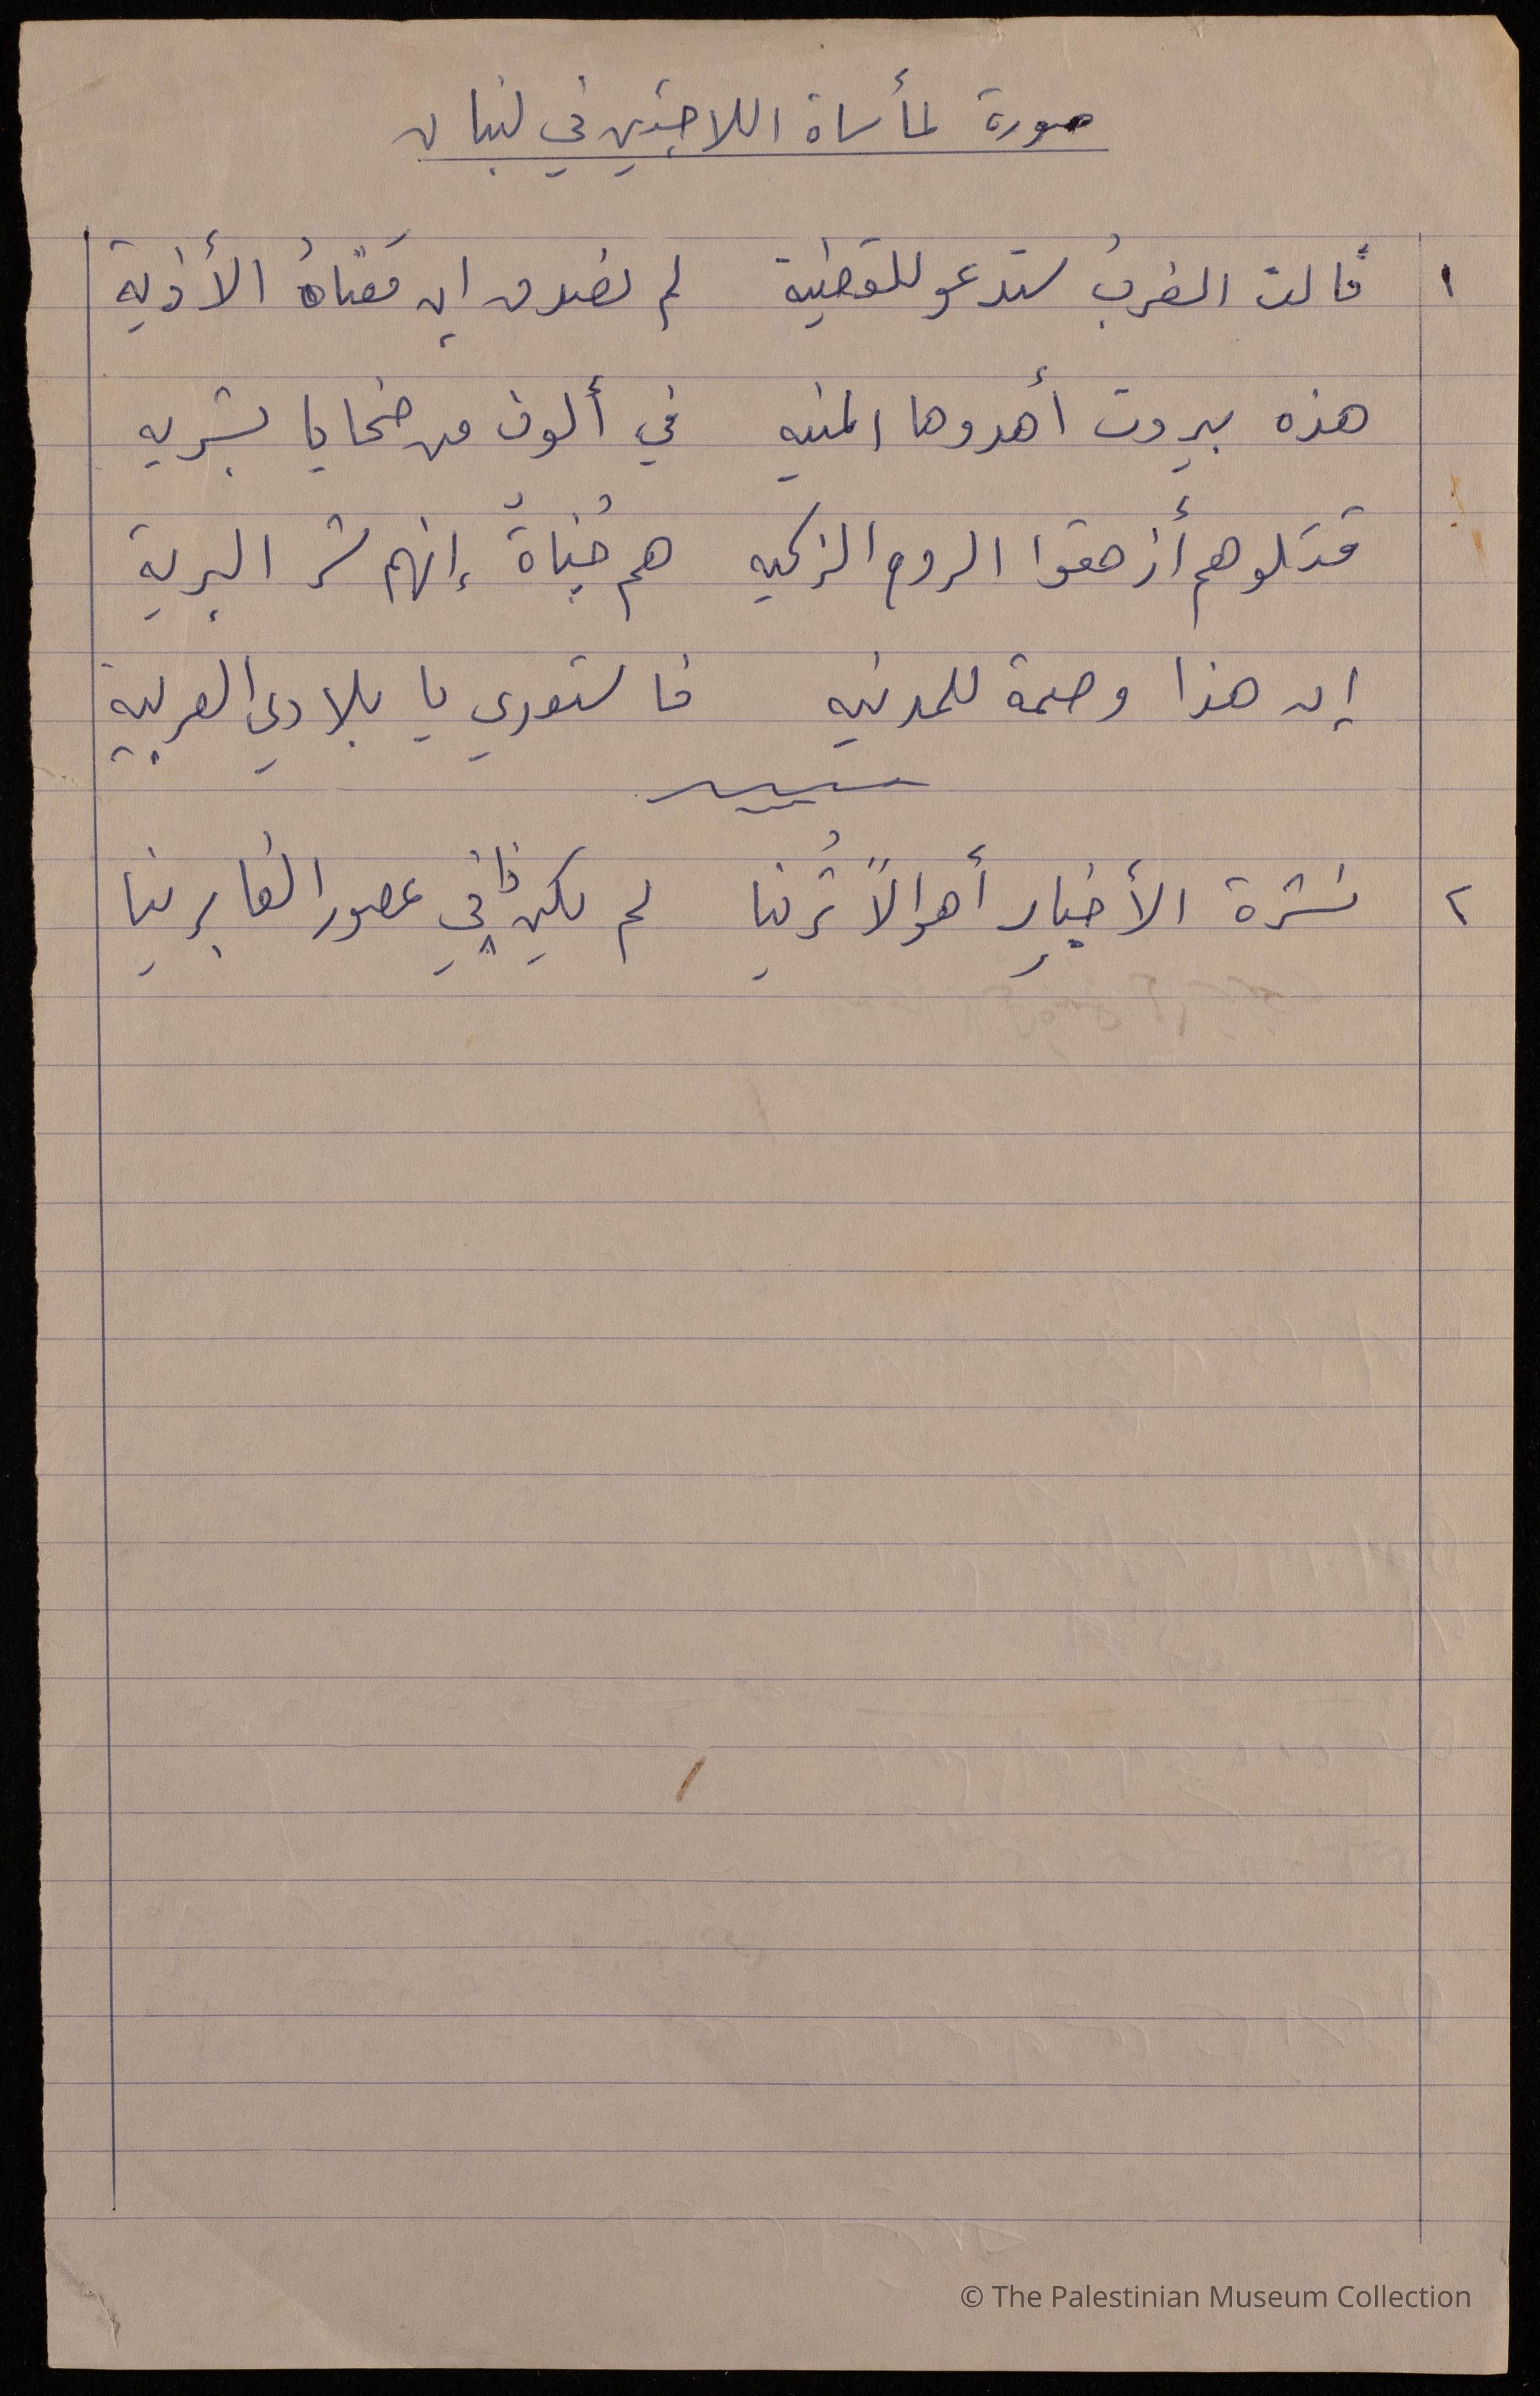 صورة لمأساة اللاجئين في لبنان
١ قالت الغربُ ستدعو للقضية لم نصدق إن فتاهُ الأذية
هذه بيروت أهدوها المنيه في ألوف من ضحايا بشريه
قتلوهم أزهقوا الروح الزكيه هم جُناةٌ إنهم شر البرية
إن هذا وصمة للمدنيه فاستعدي يا بلادي العربية
٢ نشرة الأخبارِ أهوالاً تُرينا لم تكن ذا في عصور الغابرينا
© The Palestinian Museum Collection